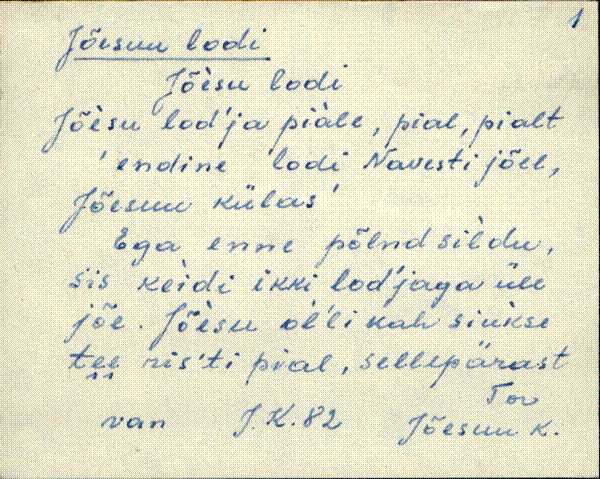 1
Jõesuu lodi
Jõèsu lodi
Jõèsu lod'ja piàle, pial, pialt
'endine lodi Navesti jõel,
Jõesuu külas'
Ega enne põlnd sìldu,
sìs kèidi ikki lod'jaga üle
jõe. Jõèsu ol'li kah siukse
tee ris'ti pial, sellepärast
Tor
van J.K. 82 Jõesuu k.